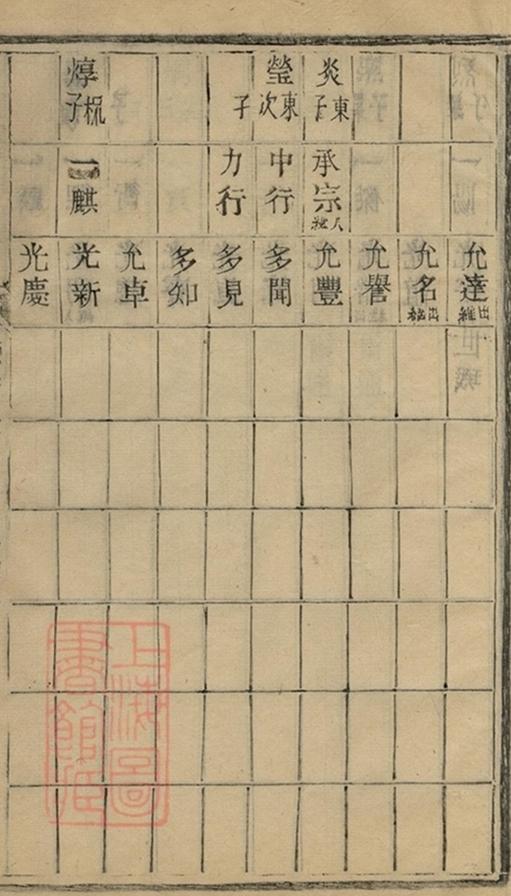 允達出繼
允名出繼
允譽
炎東子 承宗入繼 允豐
瑩東次 中行 多聞
子 力行 多見
多知
允卓
焞杌子 一麒 光新
光慶
上海圖書館藏